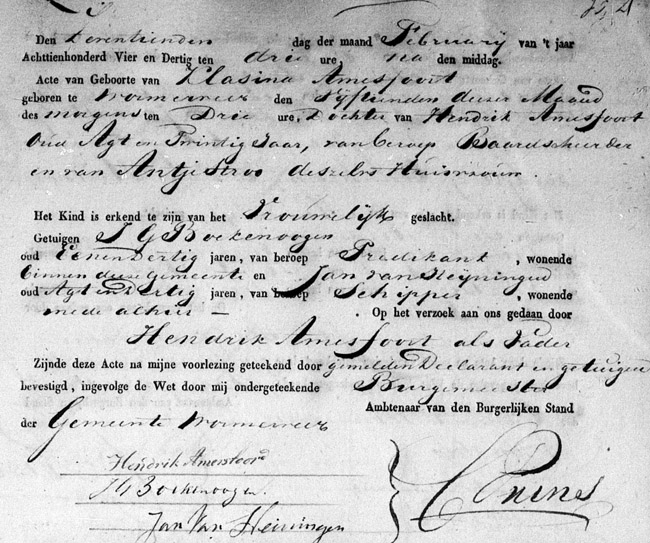 Den Zeventienden dag der maand February van 't jaar
Achttienhonderd Vier en Dertig ten drie ure na den middag.
Acte van Geboorte van Klasina Amesfoort
geboren te Wormerveer den Vijftienden deeser Maand
des morgens ten Drie ure, Dochter van Hendrik Amesfoort
Oud Agt en Twintig Jaar, van beroep Baardscheerder
en van Antje Stroo deszelvs Huisvrouw.
Het Kind is erkend te zijn van het Vrouwelijk geslacht.
Getuigen J G Boekenoogen
oud Eenendertig jaren, van beroep Predikant, wonende
binnen deese Gemeente en Jan van Heijningen
oud Agt en Dertig jaren, van beroep Schipper, wonende
mede alhier — . Op het verzoek aan ons gedaan door
Hendrik Amesfoort als Vader
Zijnde deze Acte na mijne voorlezing geteekend door gemelden Declarant en getuigen
bevestigd, ingevolge de Wet door mij ondergeteekende Burgemeester
Ambtenaar van den Burgerlijken Stand
der Gemeente Wormerveer
Hendrik Amersfoord
JG Boekenoogen
Jan Van Heiningen